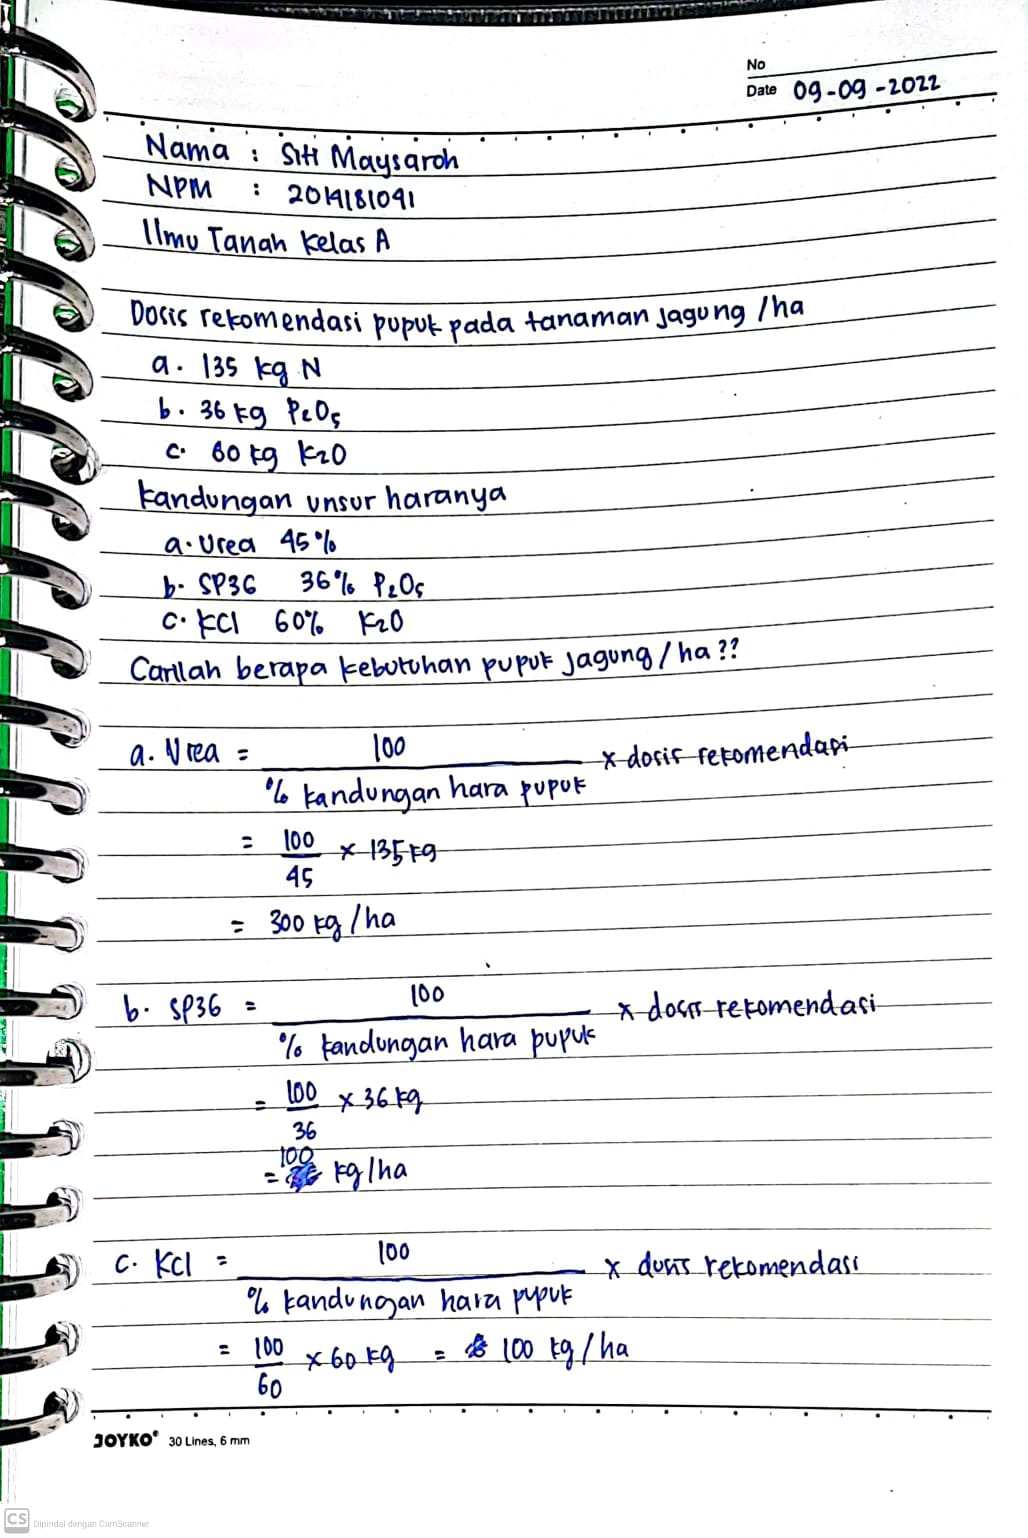 No
Date 09-09-2022
Nama : Siti Maysaroh
NPM : 2014181091
Ilmu Tanah Kelas A
Dosis rekomendasi pupuk pada tanaman jagung /ha
a. 135 kg N
b. 36 kg P2O5
c. 60 kg K2O
kandungan unsur haranya
a. Urea 45%
b. SP36 36% P2O5
c. KCl 60% K2O
Carilah berapa kebutuhan pupuk jagung / ha ??
a. Urea = 100 x dosis rekomendasi
% kandungan hara pupuk
= 100 x 135 kg
45
= 300 kg /ha
b. SP36 = 100 x dosis rekomendasi
% kandungan hara pupuk
= 100 x 36 kg
36
100
= kg/ha
c. KCl = 100 x dosis rekomendasi
% kandungan hara pupuk
= 100 x 60 kg = 100 kg / ha
60
JOYKO® 30 Lines, 6 mm
CS Dipindai dengan CamScanner